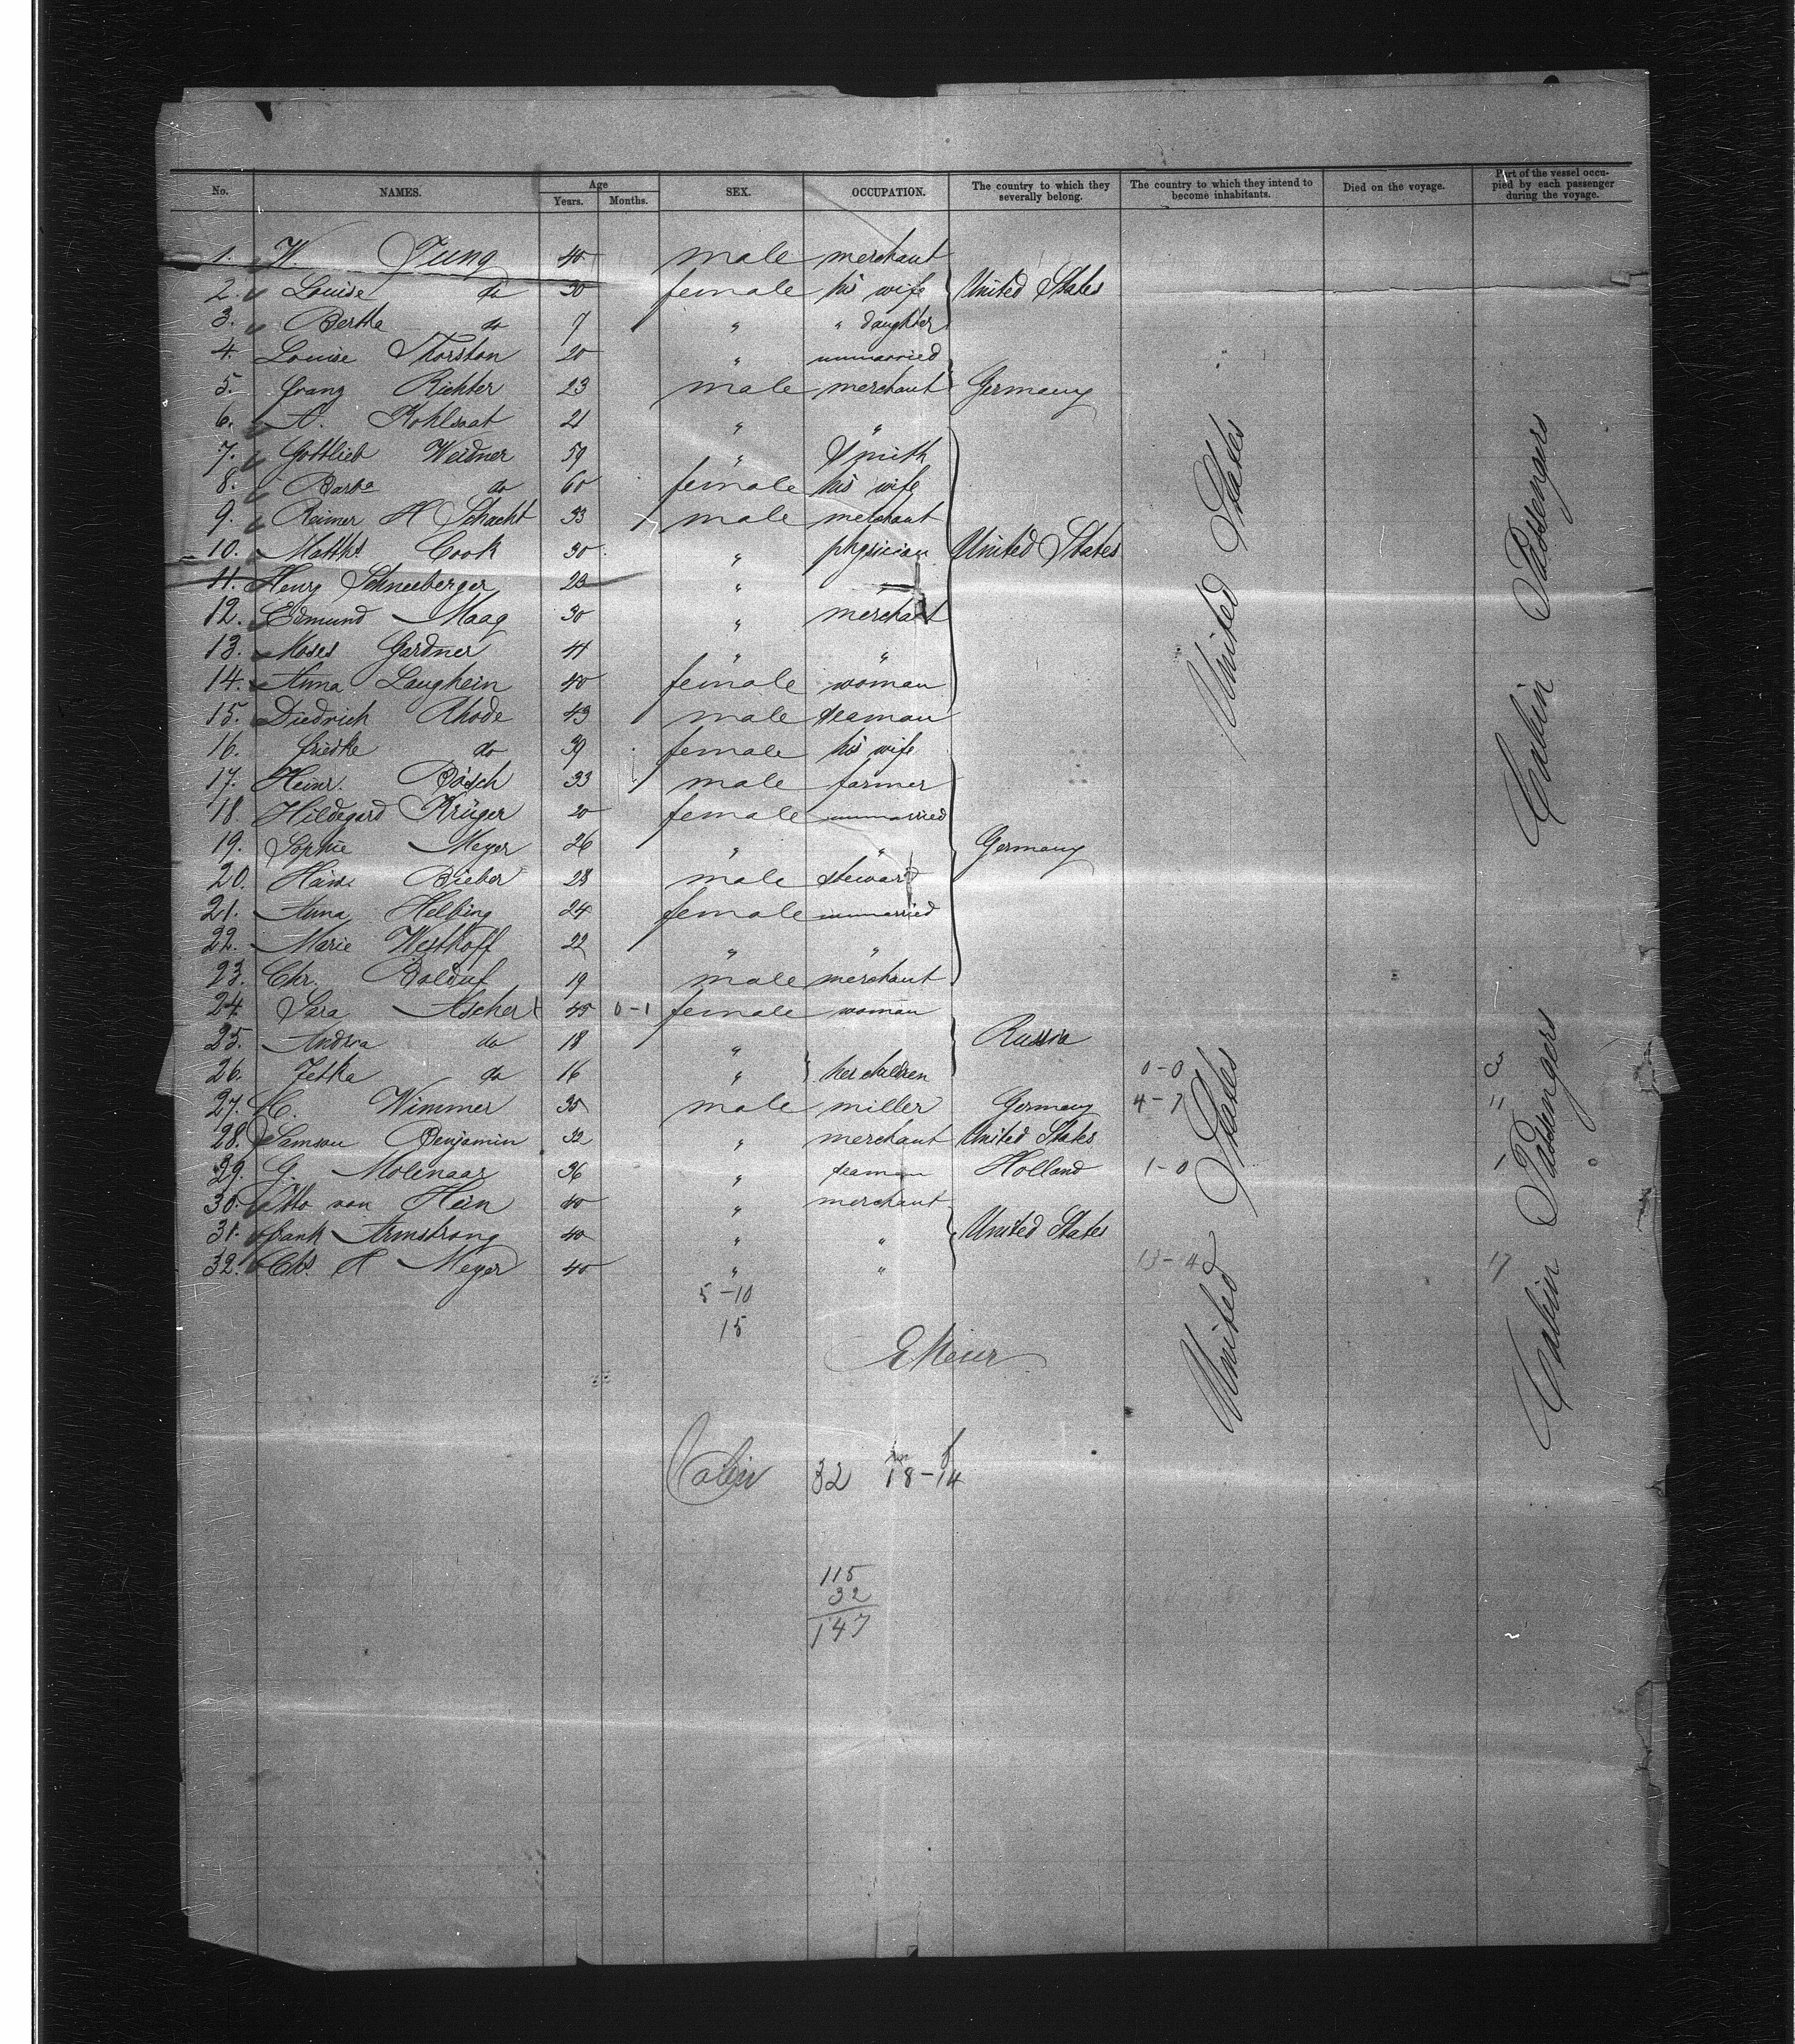 No. NAMES. Age Years. Months. SEX. OCCUPATION. The country to which they severally belong. The country to which they intend to become inhabitants. Died on the voyage. Part of the vessel occupied by each passenger during the voyage.
1. W. Jung 40 male merchant
2. Louise do 30 female his wife United States
3. Bertha do 7 " " daughter
4. Louise Thorston 20 " unmarried
5. Franz Richter 23 male merchant Germany
6. A. Kohlsaat 21 " "
7. Gottlieb Weidner 59 " Smith
8. Barba do 60 female his wife
9. Reimer H Schacht 33 male merchant
10. Matths Cook 30 " physician United States
11. Henry Schneeberger 23 "
12. Edmund Maag 30 " merchant
13. Moses Gardner 41 " "
14. Anna Laughein 40 female woman
15. Diedrich Rhode 43 male seaman
16. Friedke do 39 female his wife
17. Heinr. Bösch 33 male farmer
18. Hildegard Krüger 20 female unmarried
19. Sophie Meyer 26 " " Germany
20. Heinr. Bieber 28 male steward
21. Anna Helbing 24 female unmarried
22. Marie Westhoff 22 " "
23. Chr. Balduf 19 male merchant
24 Sara Ascher 45 0-1 female woman
25. Andria do 18 " Russia
26. Jetka do 16 " her children 0-0
27. H. Wimmer 35 male miller Germany 4-7
28. Samson Benjamin 32 " merchant United States
29. G. Molenaar 36 " seaman Holland 1-0
30. Otto von Hein 40 " merchant
31. Frank Armstrong 40 " " United States
32. Chs. H Meyer 40 " " 13-4 17
United States
Cabin Passengers
United States
Cabin Passengers
5-10
15
E Meier
Cabin 32 18-14
115
32
147